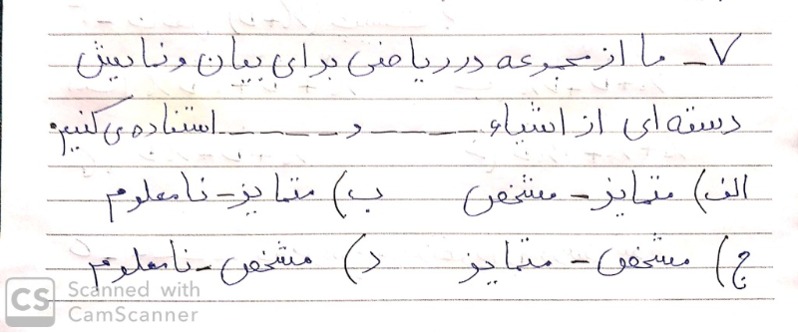 ۷- ما از مجموعه در ریاضی برای بیان و نمایش
دسته ای از اشیاء ------ و ------ استفاده می کنیم.
الف) متمایز - مشخص ب) متمایز - نامعلوم
ج) مشخص - متمایز د) مشخص - نامعلوم
CS Scanned with
CamScanner